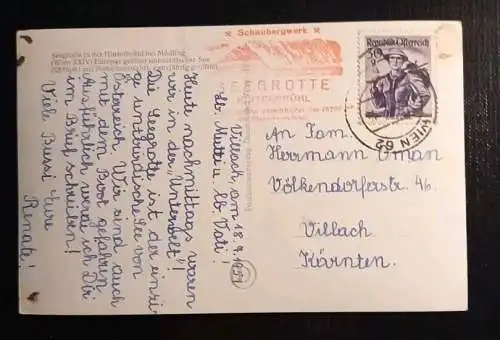 Seegrotte in der Hinterbrühl bei Mödling
(Wien XXIV) Europas größter unterirdischer See
Schaubergwerk
SEEGROTTE
HINTERBRÜHL
Republik Österreich
WIEN 62
Villach, am 18.9.1951
lb. Mutti u. lb. Vati!
Heute nachmittags waren
wir in der „Unterwelt"!
Die Seegrotte ist der einzi-
ge unterirdische See von
Österreich. Wir sind auch
mit dem Boot gefahren
Ausführlich werde ich Dir
im Brief schreiben!
Viele Bussi Eure
Renate!
An Fam.
Hermann Oman
Völkendorferstr. 46.
Villach
Kärnten.